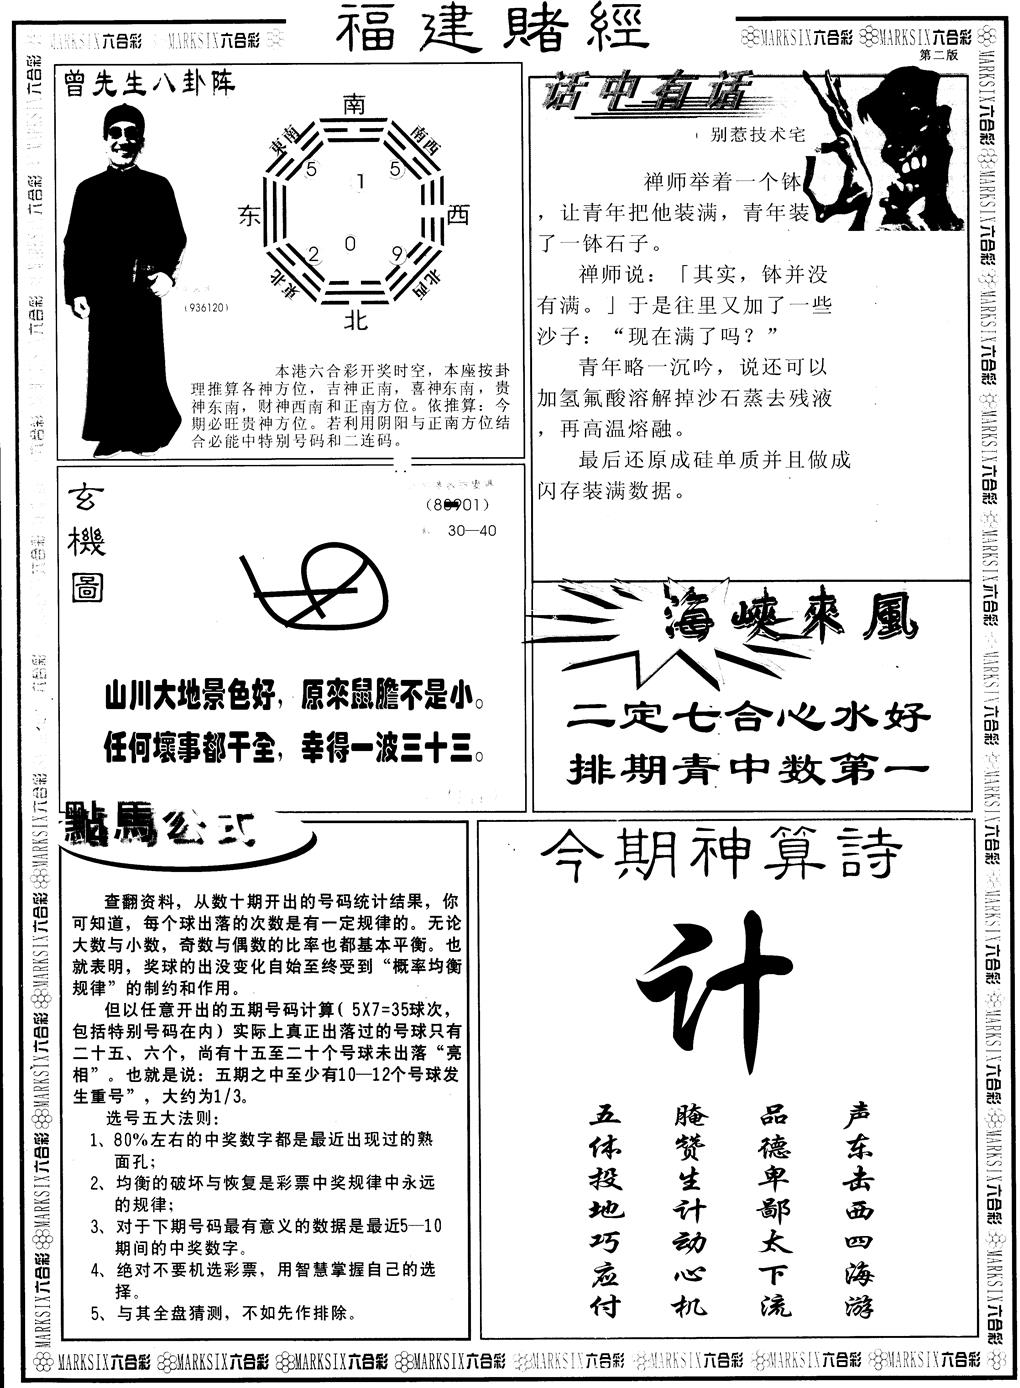 福建賭經
MARKSIX六合彩 MARKSIX六合彩
MARKSIX六合彩 MARKSIX六合彩
第二版
曾先生八卦阵
南
東南
南西
5
5
1
东
西
2
0
9
東北
北西
北
(936120)
本港六合彩开奖时空，本座按卦
理推算各神方位，吉神正南，喜神东南，贵
神东南，财神西南和正南方位。依推算：今
期必旺贵神方位。若利用阴阳与正南方位结
合必能中特别号码和二连码。
话中有话
别惹技术宅
禅师举着一个钵
，让青年把他装满，青年装
了一钵石子。
禅师说：「其实，钵并没
有满。」于是往里又加了一些
沙子：“现在满了吗？”
青年略一沉吟，说还可以
加氢氟酸溶解掉沙石蒸去残液
，再高温熔融。
最后还原成硅单质并且做成
闪存装满数据。
玄機圖
30—40
山川大地景色好，原來鼠膽不是小。
任何壞事都干全，幸得一波三十三。
海峽來風
二定七合心水好
排期青中数第一
點馬公式
查翻资料，从数十期开出的号码统计结果，你
可知道，每个球出落的次数是有一定规律的。无论
大数与小数，奇数与偶数的比率也都基本平衡。也
就表明，奖球的出没变化自始至终受到“概率均衡
规律”的制约和作用。
但以任意开出的五期号码计算( 5X7=35球次，
包括特别号码在内）实际上真正出落过的号球只有
二十五、六个，尚有十五至二十个号球未出落“亮
相”。也就是说：五期之中至少有10—12个号球发
生重号”，大约为1/3。
选号五大法则：
1、80%左右的中奖数字都是最近出现过的熟
面孔；
2、均衡的破坏与恢复是彩票中奖规律中永远
的规律；
3、对于下期号码最有意义的数据是最近5—10
期间的中奖数字。
4、绝对不要机选彩票，用智慧掌握自己的选
择。
5、与其全盘猜测，不如先作排除。
今期神算詩
计
声东击西四海游
品德卑鄙太下流
腌赞生计动心机
五体投地巧应付
MARKSIX六合彩 MARKSIX六合彩 MARKSIX六合彩 MARKSIX六合彩 MARKSIX六合彩 MARKSIX六合彩 MARKSIX六合彩 MARKSIX六合彩